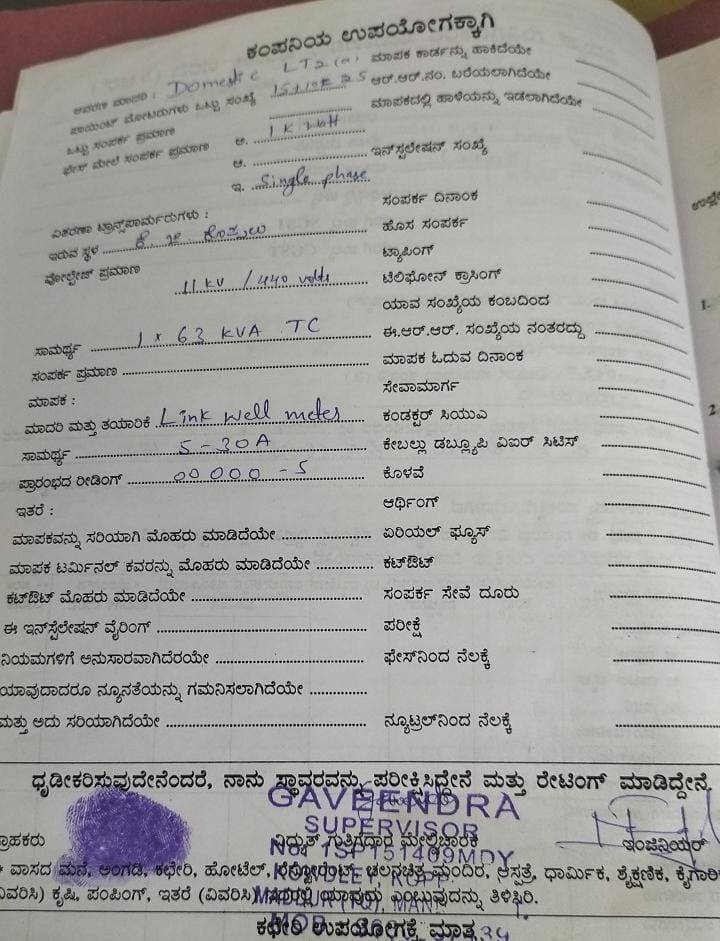 ಕಂಪನಿಯ ಉಪಯೋಗಕ್ಕಾಗಿ
ಮಾದರಿ : Domestic LT2 (a) ಮಾಪಕ ಕಾರ್ಡನ್ನು ಹಾಕಿದೆಯೇ
ಪಾಯಿಂಟ್ ಮೋಟರುಗಳು ಒಟ್ಟು ಸಂಖ್ಯೆ ಆರ್.ಆರ್.ನಂ. ಬರೆಯಲಾಗಿದೆಯೇ
ಒಟ್ಟು ಸಂಪರ್ಕ ಪ್ರಮಾಣ ಮಾಪಕದಲ್ಲಿ ಹಾಳೆಯನ್ನು ಇಡಲಾಗಿದೆಯೇ
ಫೇಸ್ ಮೇಲೆ ಸಂಪರ್ಕ ಪ್ರಮಾಣ ಅ.
ಆ. ಇನ್‌ಸ್ಟಲೇಷನ್ ಸಂಖ್ಯೆ
ಇ. Single phase
ಸಂಪರ್ಕ ದಿನಾಂಕ
ವಿತರಣಾ ಟ್ರಾನ್ಸ್‌ಪಾರ್ಮರುಗಳು :
ಇರುವ ಸ್ಥಳ ಹೊಸ ಸಂಪರ್ಕ
ವೋಲ್ಟೇಜ್ ಪ್ರಮಾಣ ಟ್ಯಾಪಿಂಗ್
11 KV / 440 volts ಟೆಲಿಫೋನ್ ಕ್ರಾಸಿಂಗ್
ಯಾವ ಸಂಖ್ಯೆಯ ಕಂಬದಿಂದ
ಸಾಮರ್ಥ್ಯ 1 x 63 KVA TC ಈ.ಆರ್.ಆರ್. ಸಂಖ್ಯೆಯ ನಂತರದ್ದು
ಸಂಪರ್ಕ ಪ್ರಮಾಣ ಮಾಪಕ ಓದುವ ದಿನಾಂಕ
ಮಾಪಕ : ಸೇವಾಮಾರ್ಗ
ಮಾದರಿ ಮತ್ತು ತಯಾರಿಕೆ Link well meter ಕಂಡಕ್ಟರ್ ಸಿಯುಎ
ಸಾಮರ್ಥ್ಯ 5-30A ಕೇಬಲ್ಲು ಡಬ್ಲ್ಯೂಪಿ ವಿಐರ್ ಸಿಟಿಸ್
ಪ್ರಾರಂಭದ ರೀಡಿಂಗ್ 00000-5 ಕೊಳವೆ
ಇತರೆ : ಆರ್ಥಿಂಗ್
ಮಾಪಕವನ್ನು ಸರಿಯಾಗಿ ಮೊಹರು ಮಾಡಿದೆಯೇ ಏರಿಯಲ್ ಫ್ಯೂಸ್
ಮಾಪಕ ಟರ್ಮಿನಲ್ ಕವರನ್ನು ಮೊಹರು ಮಾಡಿದೆಯೇ ಕಟ್‌ಔಟ್
ಕಟ್‌ಔಟ್ ಮೊಹರು ಮಾಡಿದೆಯೇ ಸಂಪರ್ಕ ಸೇವೆ ದೂರು
ಈ ಇನ್‌ಸ್ಟೆಲೇಷನ್ ವೈರಿಂಗ್ ಪರೀಕ್ಷೆ
ನಿಯಮಗಳಿಗೆ ಅನುಸಾರವಾಗಿದೆರಯೇ ಫೇಸ್‌ನಿಂದ ನೆಲಕ್ಕೆ
ಯಾವುದಾದರೂ ನ್ಯೂನತೆಯನ್ನು ಗಮನಿಸಲಾಗಿದೆಯೇ
ಮತ್ತು ಅದು ಸರಿಯಾಗಿದೆಯೇ ನ್ಯೂಟ್ರಲ್‌ನಿಂದ ನೆಲಕ್ಕೆ
ಧೃಡೀಕರಿಸುವುದೇನೆಂದರೆ, ನಾನು ಸ್ಥಾವರವನ್ನು ಪರೀಕ್ಷಿಸಿದ್ದೇನೆ ಮತ್ತು ರೇಟಿಂಗ್ ಮಾಡಿದ್ದೇನೆ.
GAVEENDRA
SUPERVISOR
ವಿದ್ಯುತ್ ಗುತ್ತಿಗೆದಾರ ಮೇಲ್ವಿಚಾರಕ ಇಂಜಿನಿಯರ್
ವಾಸದ ಮನೆ, ಅಂಗಡಿ, ಕಛೇರಿ, ಹೋಟೆಲ್, ರೆಸ್ಟೋರೆಂಟ್, ಚಲನಚಿತ್ರ ಮಂದಿರ, ಆಸ್ಪತ್ರೆ, ಧಾರ್ಮಿಕ, ಶೈಕ್ಷಣಿಕ,
ಕೃಷಿ, ಪಂಪಿಂಗ್, ಇತರೆ (ವಿವರಿಸಿ) ಯಾವುದು ಎಂಬುವುದನ್ನು ತಿಳಿಸಿರಿ.
ಕಛೇರಿ ಉಪಯೋಗಕ್ಕೆ ಮಾತ್ರ